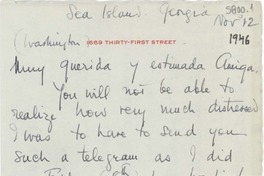 Sea Island, Georgia
5800.1
Nov 12
(Washington
1669 THIRTY-FIRST STREET
1946
Muy querida y estimada Amiga,
You will not be able to
realize how very much distressed
I was to have to send you
such a telegram as I did